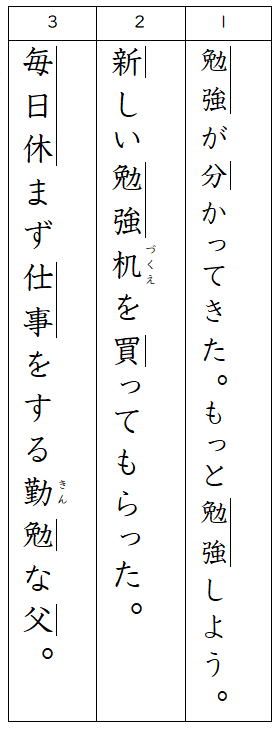 1
勉強が分かってきた。もっと勉強しよう。
2
新しい勉強机を買ってもらった。
づくえ
3
毎日休まず仕事をする勤勉な父。
きん